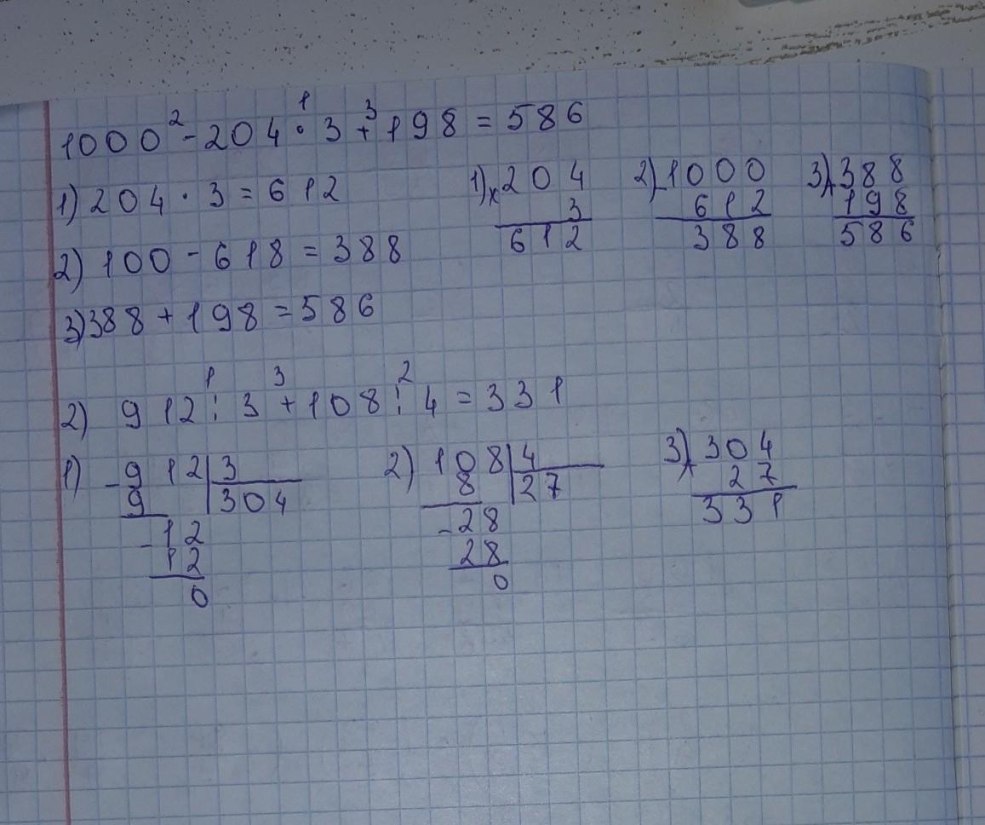 1000 ² - 204 ¹· 3 ³+ 198 = 586
1) 204 · 3 = 612
1) x 204
3
612
2) - 1000
612
388
3) + 388
198
586
2) 100 - 618 = 388
3) 388 + 198 = 586
2) 912 ¹: 3 ³+ 108 ²: 4 = 331
1) - 912 | 3
9 | 304
- 12
12
0
2) 108 | 4
8 | 27
- 28
28
0
3) + 304
27
331